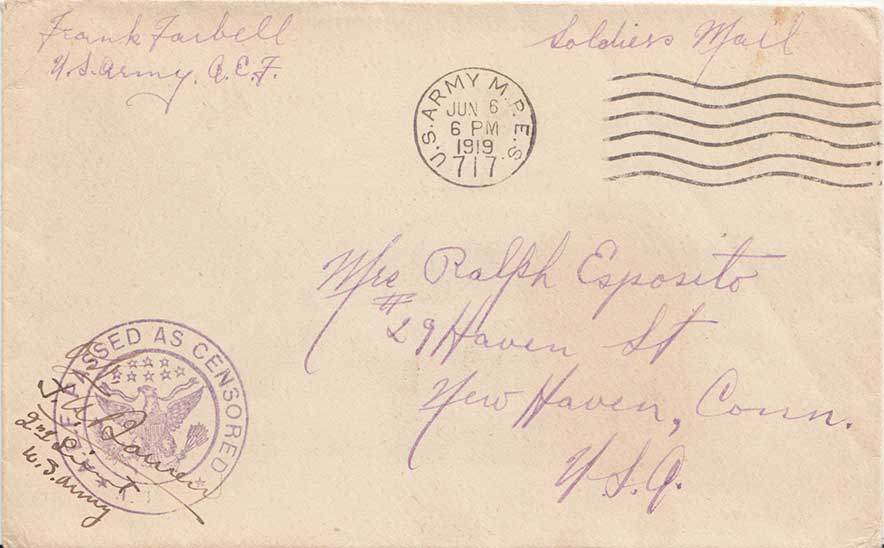 Frank Farbell
U.S. Army, A.E.F.
Soldiers Mail
U.S. ARMY M.P.E.S.
JUN 6
6 PM
1919
717
Mrs Ralph Esposito
#29 Haven St
New Haven, Conn.
U.S.A.
PASSED AS CENSORED
2nd Lieut
U.S. Army